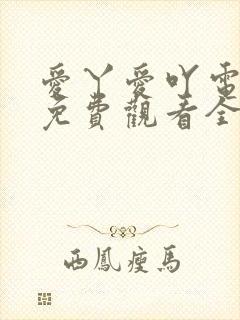 愛丫愛吖電
免費觀看全
西鳳瘦馬